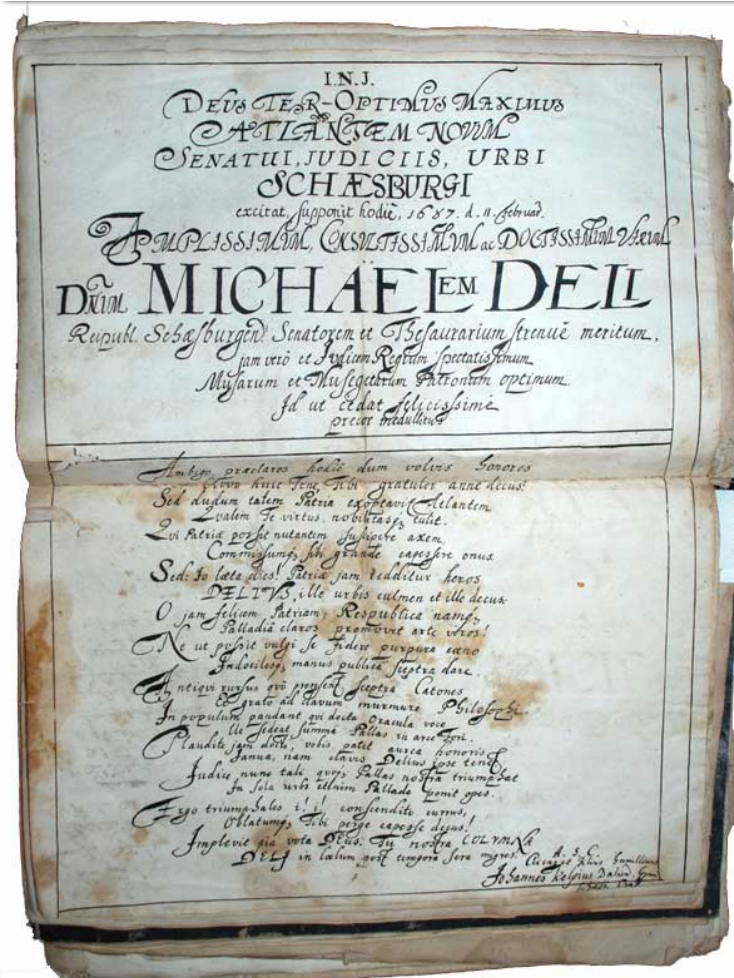 I.N.J.
DEUS TER-OPTIMUS MAXIMUS
ATLANTEM NOVUM
SENATUI, JUDICIIS, URBI
SCHÆSBURGI
excitat, supponit hodiè, 1687. d. 11. Februar.
AMPLISSIMUM, CONSULTISSIMUM ac DOCTISSIMUM VIRUM
DNUM MICHAËLEM DELI
Reipubl. Schæsburgens. Senatorem et Thesaurarium strenuè meritum,
jam verò et Judicem Regium spectatissimum
Musarum et Musegetarum Patronum optimum
Id ut cedat felicissimè
precor medullitus
Ambigo, præclaros hodiè dum volvis honores
huic Tibi gratuler anne decus?
Sed dudum talem Patria exoptavit Atlantem
Qualem Te virtus nobilitasq, tulit.
Qui Patriæ possit nutantem suscipere axem,
Commissumq, sibi grande capessere onus.
Sed: Jo læta dies! Patriæ jam redditur heros
DELIUS, ille urbis culmen et ille decus.
O jam felicem Patriam, Respublica namq,
Palladiâ claros promovit arte viros!
Ne ut possit vulgi se fidere purpura cæno
Indocilesq, manus publica sceptra dare.
Antiqui rursus prensent sceptra Catones
Et grato ad clavum murmure Philosophi.
In populum pandant qui docta Oracula voce
Ille sedeat summâ Pallas in arce
Plaudite jam docti, vobis patet aurea honoris
Janua, nam clavis Delius ipse tenet
Judice nunc tali quoq, Pallas nostra triumphat
In sola urbs etenim Pallade ponit opes.
Ergo triumphales i! i! conscendito currus,
Oblatumq, Tibi perge capesse decus!
Implevit pia vota Deus. Tu nostra COLUMNA
DELI in cælum post tempora sera migres.
A. S. C.
humillimus
Johannes Kelpius